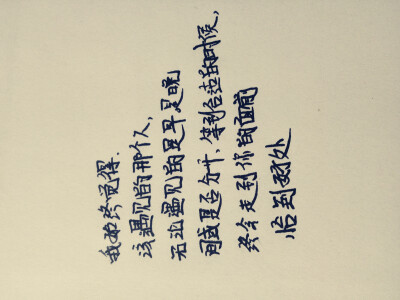 我始终觉得,
该遇见的那个人,
无论遇见的是早是晚
间或是否分开、等到合适的时候,
终会走到你的面前
恰到好处